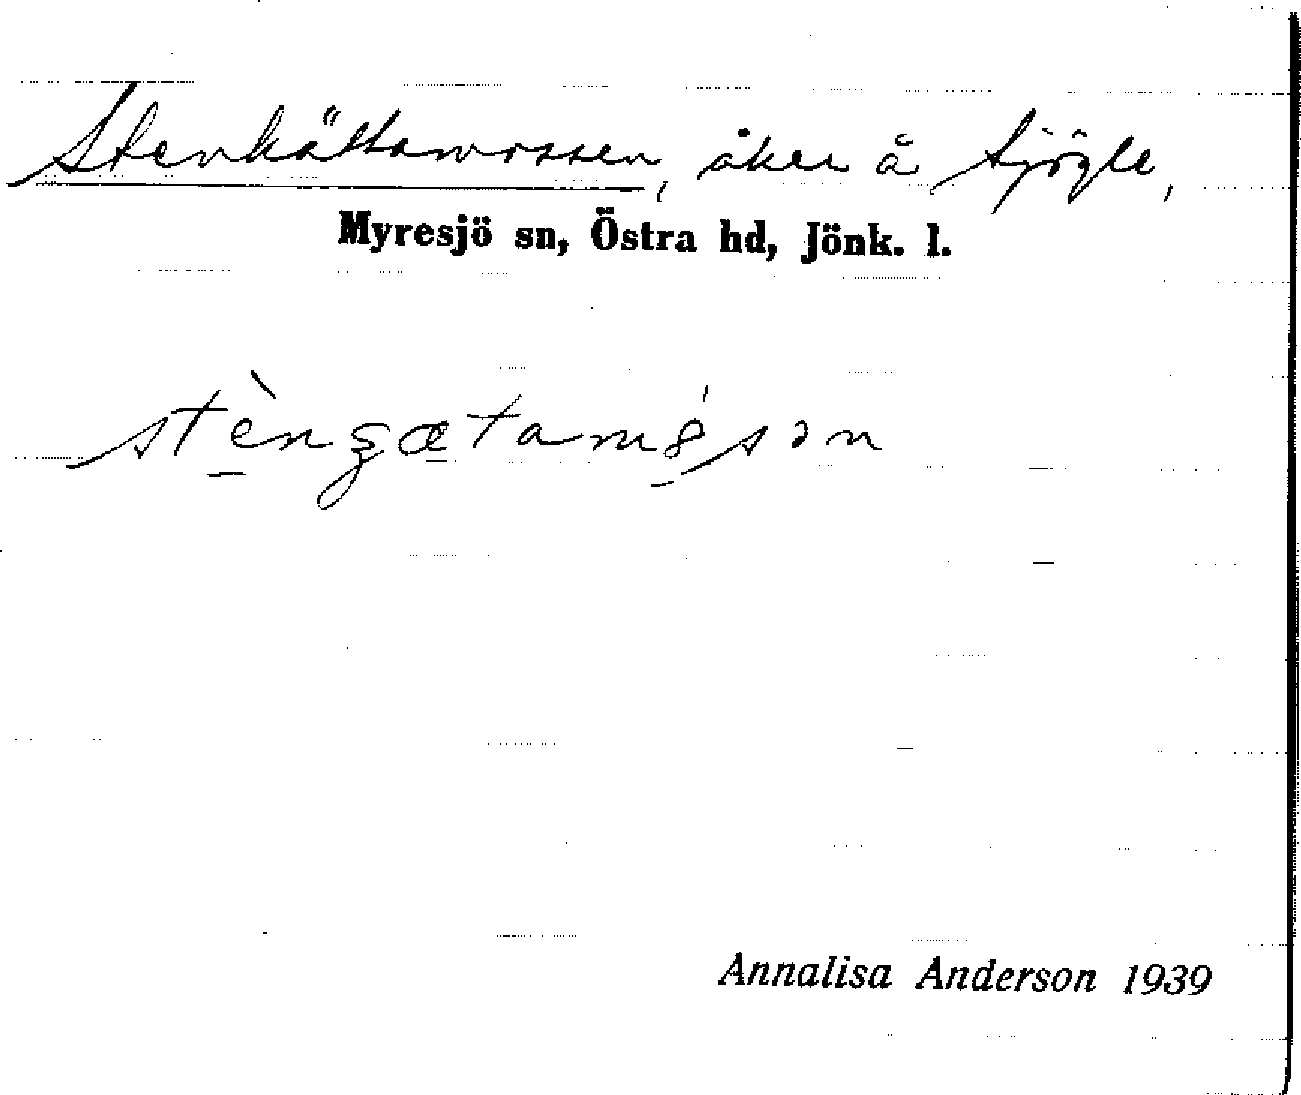 Stenkättamossen, åker å Sjögle,
Myresjö sn, Östra hd, Jönk. l.
Annalisa Anderson 1939